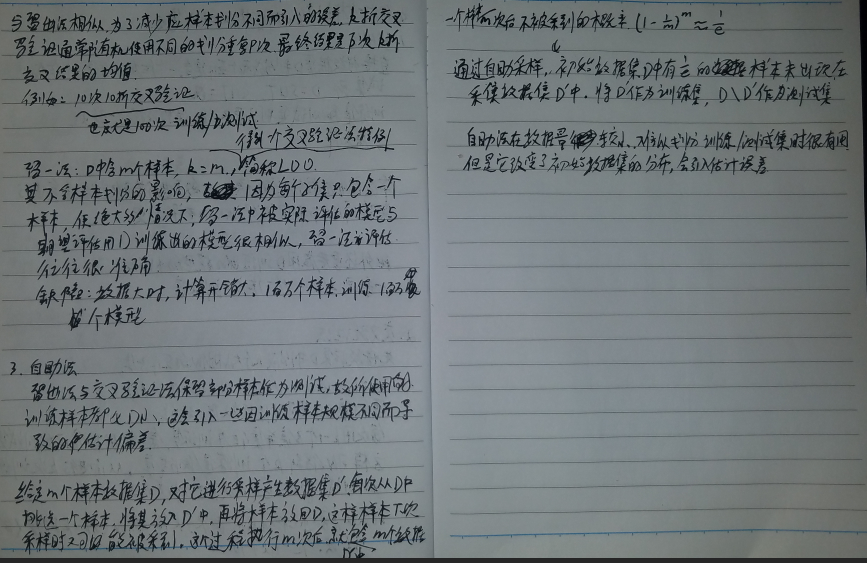 与留出法相似,为了减少应样本划分不同而引入的误差,k折交叉
验证通常随机使用不同的划分重复P次,最终结果是P次k折
交叉结果的均值.
例如:10次10折交叉验证
也就是100次训练/次测试
留一法:D中含m个样本,k=m,简称LOO
其不受样本划分的影响,因为每个子集只包含一个
样本,但绝大多情况下,留一法中被实际评估的模型与
期望评估用D训练出的模型很相似,留一法评估
往往很准确
缺陷:数据大时,计算开销大,1百万个样本,训练1百万
个模型
3.自助法
留出法与交叉验证法保留部分样本作为测试,故所使用的
训练样本都比D小,这会引入一些因训练样本规模不同而导
致的估计偏差.
给定m个样本数据集D,对它进行采样产生数据集D′:每次从D中
挑选一个样本,将其放入D′中,再将样本放回D,这样样本下次
采样时又可能被采到.这个过程执行m次后,就包含m个数据
一个样m次后不被采到的概率 (1-1/m)^m≈1/e
通过自助采样,初始数据集D中有1/e的样本未出现在
采集数据集D′中.将D′作为训练集,D\D′作为测试集
自助法在数据量较小、难以划分训练/测试集时很有用
但是它改变了初始数据集的分布,会引入估计误差